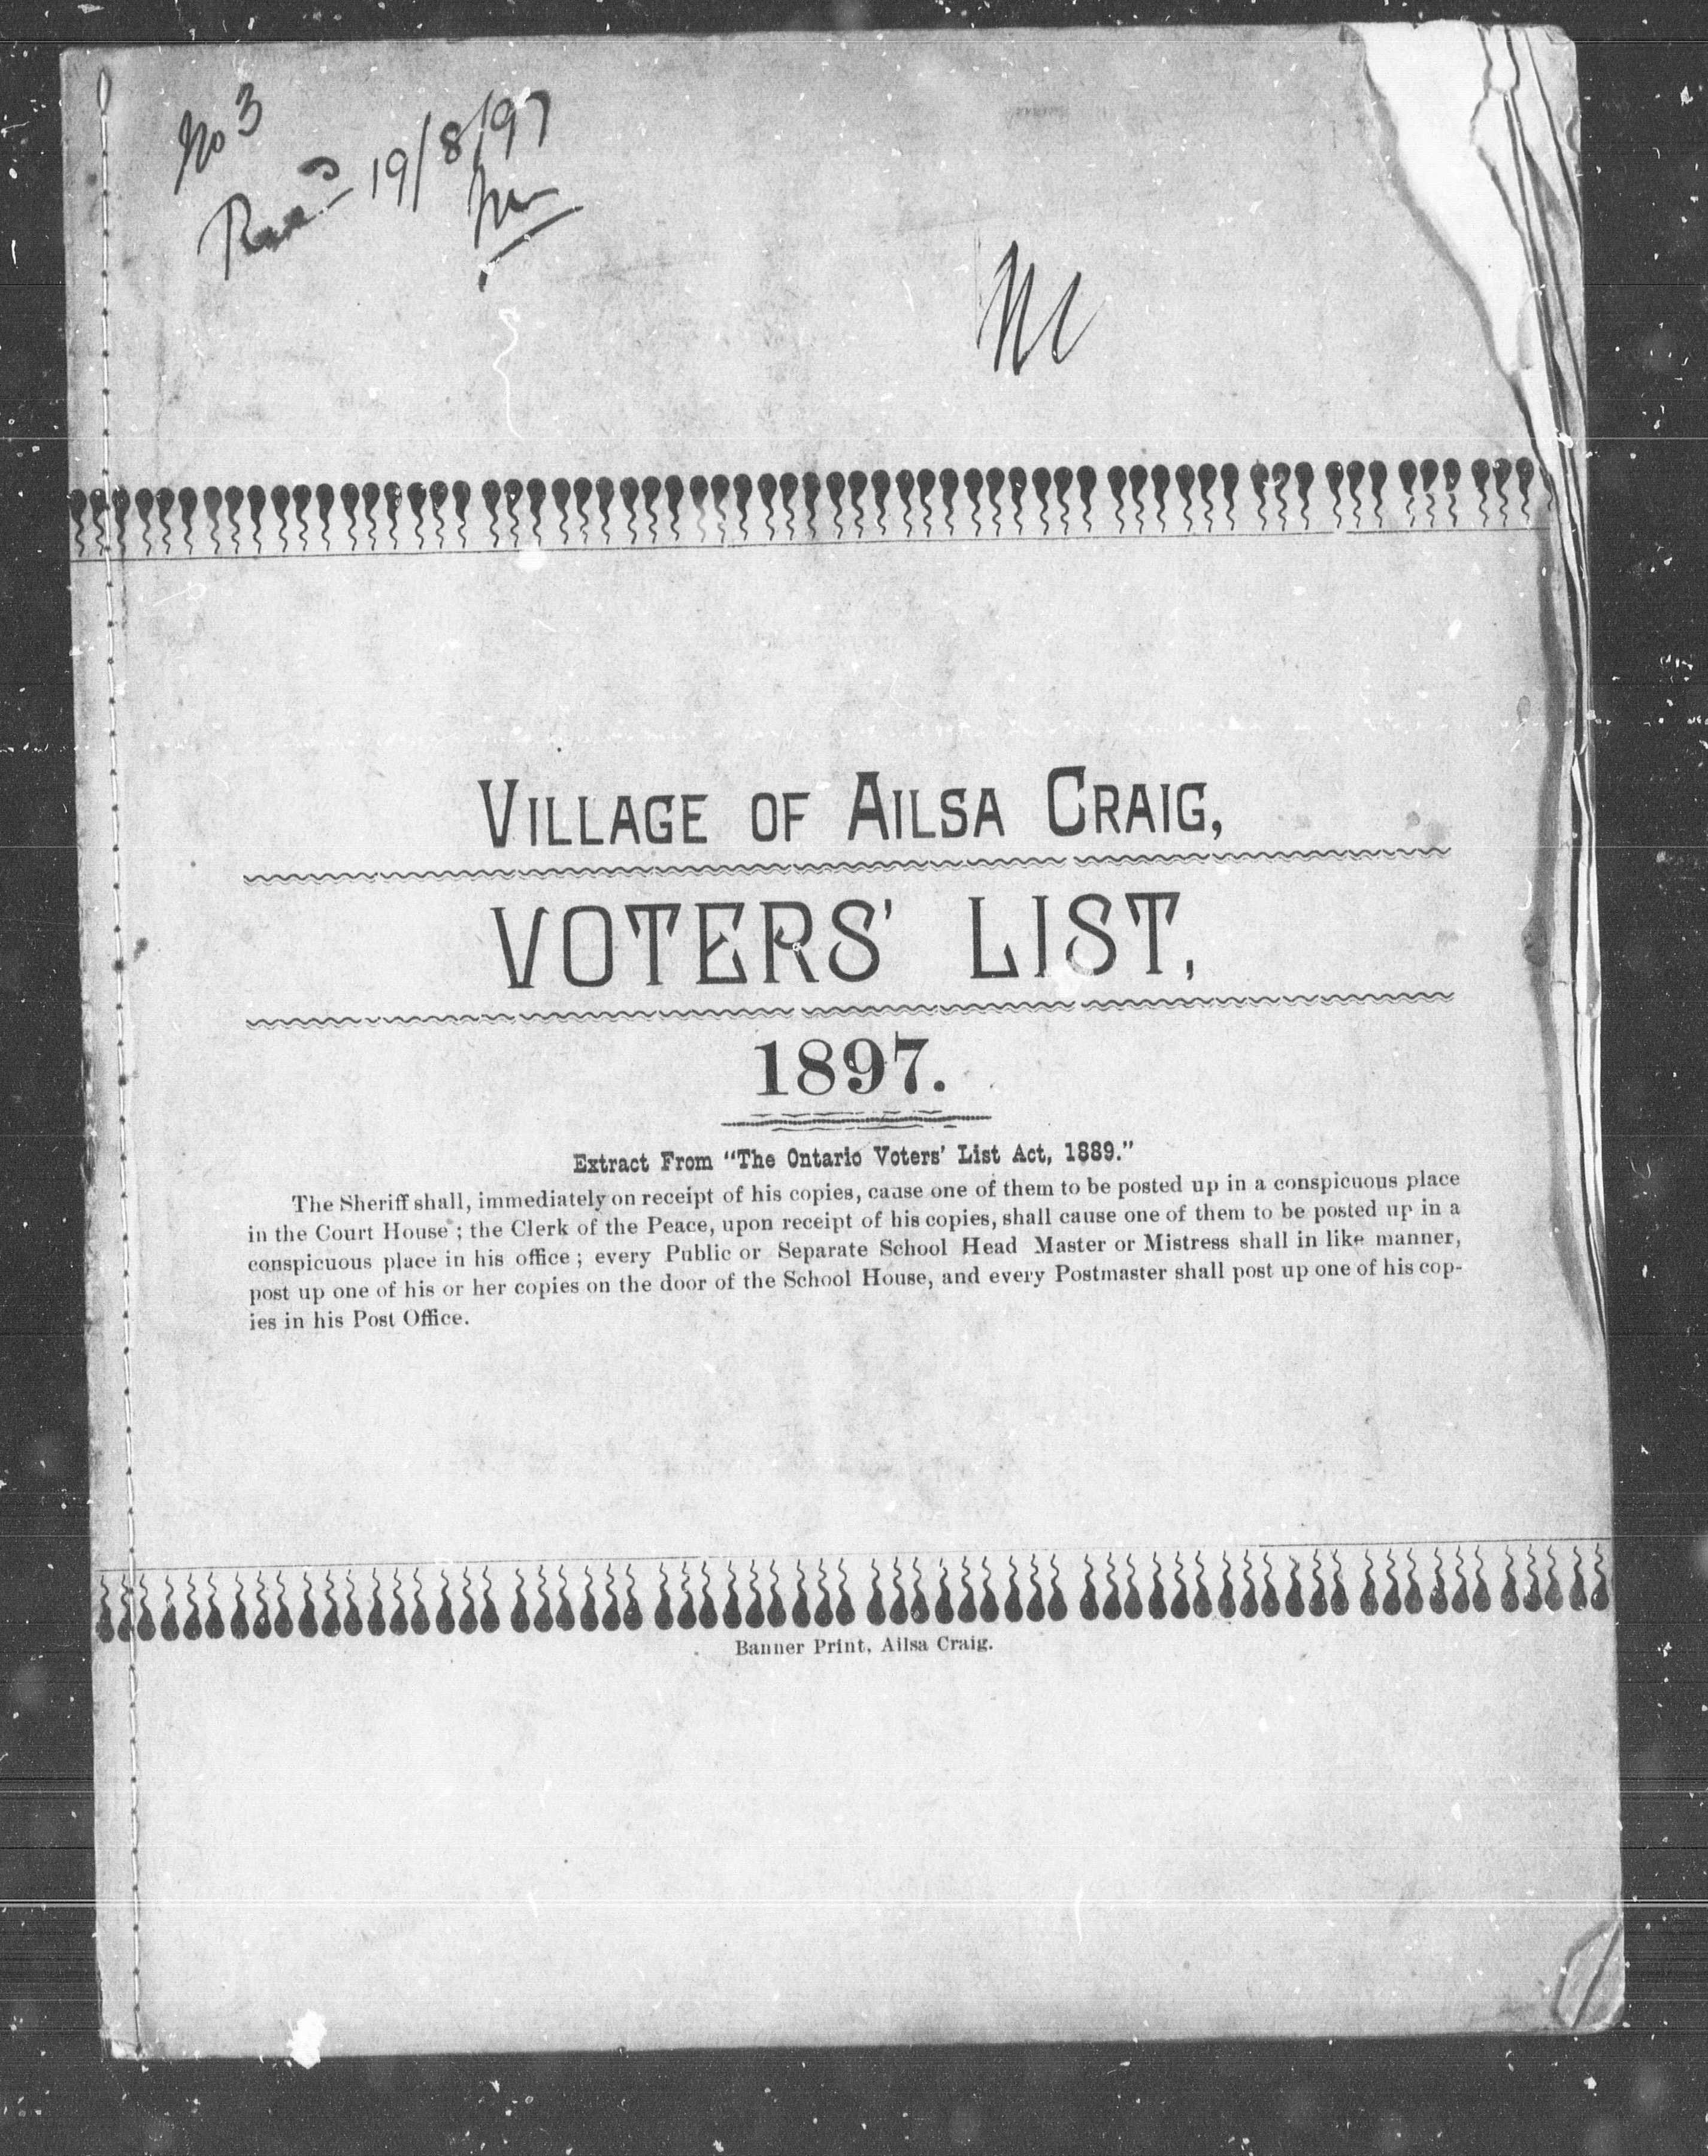 No 3
Rec'd 19/8/97
VILLAGE OF AILSA CRAIG,
VOTERS' LIST,
1897.
Extract From "The Ontario Voters' List Act, 1889."
The Sheriff shall, immediately on receipt of his copies, cause one of them to be posted up in a conspicuous place
in the Court House ; the Clerk of the Peace, upon receipt of his copies, shall cause one of them to be posted up in a
conspicuous place in his office ; every Public or Separate School Head Master or Mistress shall in like manner,
post up one of his or her copies on the door of the School House, and every Postmaster shall post up one of his cop-
ies in his Post Office.
Banner Print, Ailsa Craig.